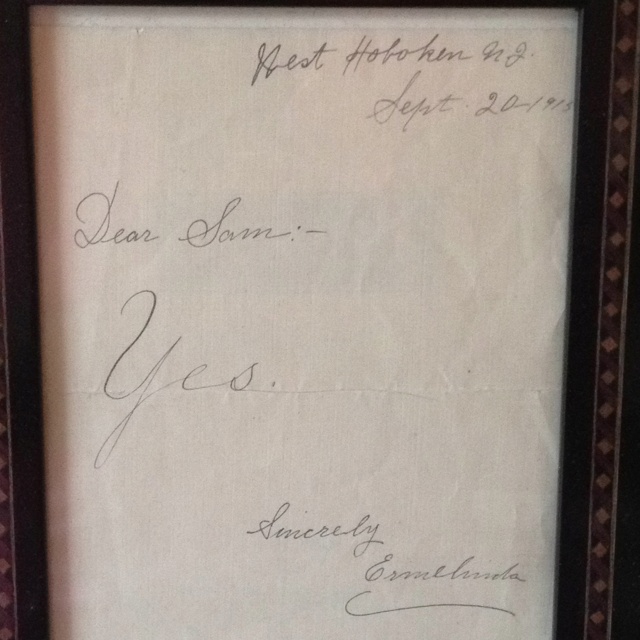 West Hoboken N.J.
Sept. 20-1915
Dear Sam:-
Yes.
Sincerely
Ermelinda